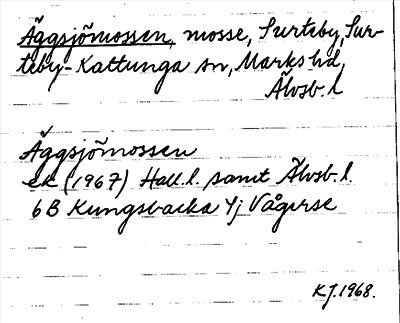 Äggsjömossen, mosse, Surteby, Sur-
teby-Kattunga sn, Marks hd,
Älvsb. l
Äggsjömossen
ek (1967) Hall. l. samt Älvsb. l.
6B Kungsbacka 4j Vågerse
KJ. 1968.